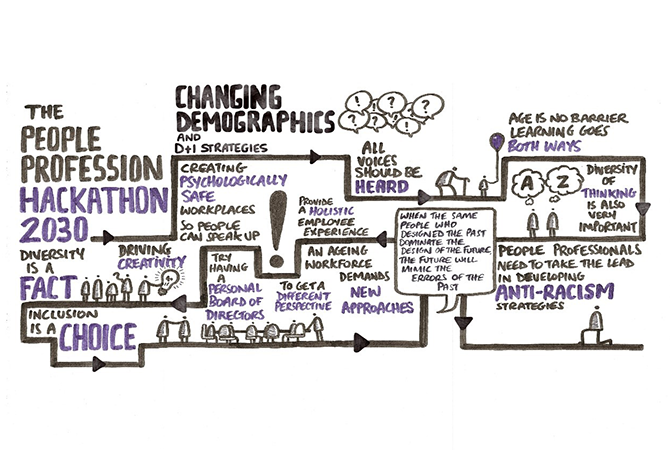 THE
PEOPLE
PROFESSION
HACKATHON
2030
CHANGING
DEMOGRAPHICS
AND
D+I STRATEGIES
! ? ?
? ! ? ?
CREATING
PSYCHOLOGICALLY
SAFE
WORKPLACES
SO PEOPLE
CAN SPEAK UP
!
ALL
VOICES
SHOULD BE
HEARD
PROVIDE
A HOLISTIC
EMPLOYEE
EXPERIENCE
AGE IS NO BARRIER
LEARNING GOES
BOTH WAYS
A Z
DIVERSITY
OF
THINKING
IS ALSO
VERY
IMPORTANT
PEOPLE PROFESSIONALS
NEED TO TAKE THE LEAD
IN DEVELOPING
ANTI-RACISM
STRATEGIES
WHEN THE SAME
PEOPLE WHO
DESIGNED THE PAST
DOMINATE THE
DESIGN OF THE FUTURE,
THE FUTURE WILL
MIMIC THE
ERRORS OF THE
PAST
AN AGEING
WORKFORCE
DEMANDS
NEW
APPROACHES
TO GET A
DIFFERENT
PERSPECTIVE
TRY
HAVING
A
PERSONAL
BOARD OF
DIRECTORS
DRIVING
CREATIVITY
DIVERSITY
IS A
FACT
INCLUSION
IS A CHOICE